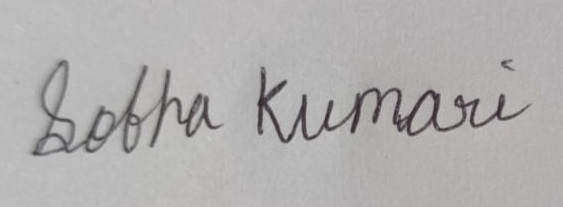 Sobha Kumari